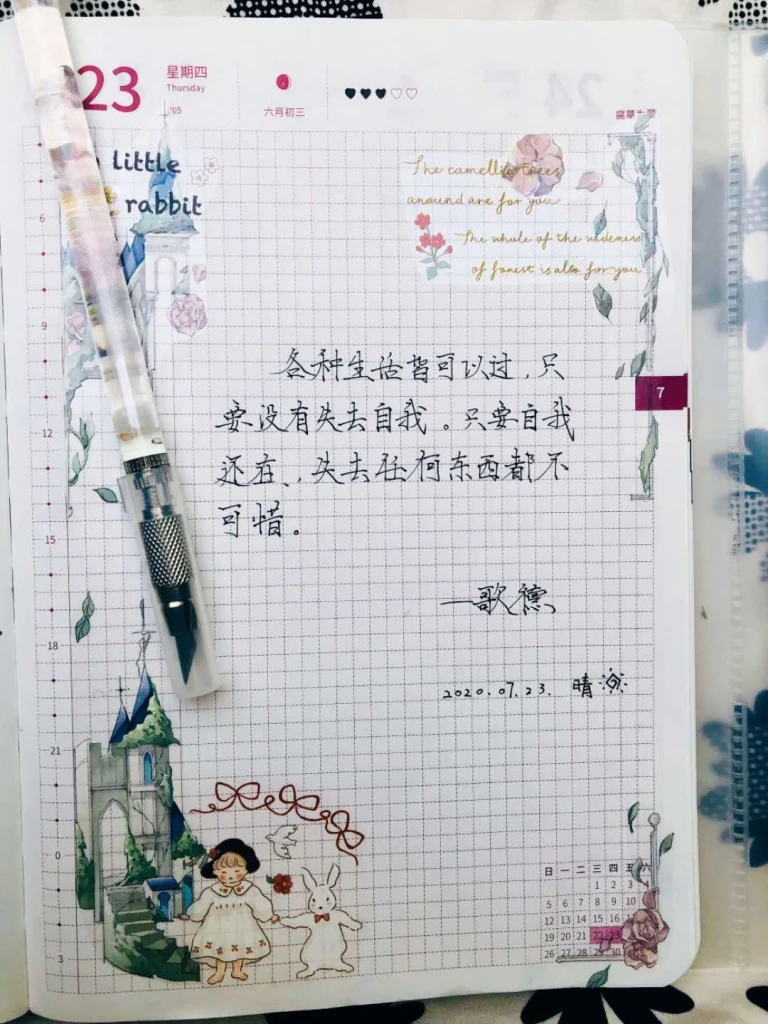 23 星期四
Thursday
205
六月初三
腐草为萤
little
rabbit
The camellia trees
around are for you
The whole of the wideness
of forest is also for you
6
9
12
15
18
21
0
3
7
各种生活皆可以过,只
要没有失去自我。只要自我
还在,失去任何东西都不
可惜。
—歌德
2020.07.23. 晴
日 一 二 三 四 五 六
1 2 3
5 6 7 8 9 10
12 13 14 15 16 17
19 20 21 22 23
26 27 28 29 30